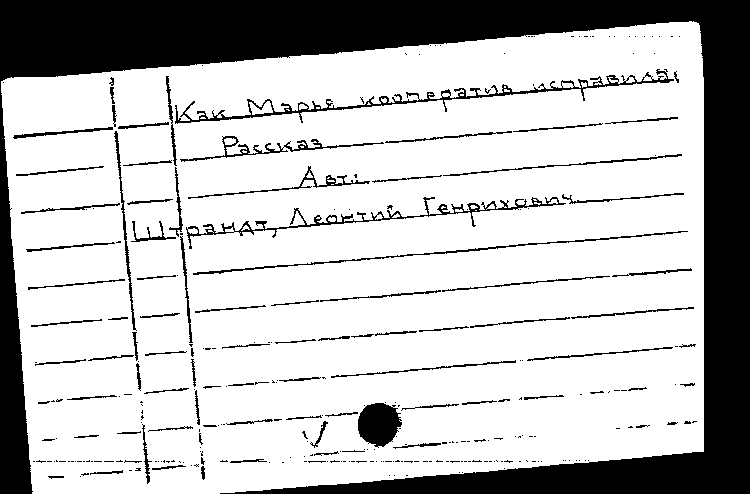 Как Марья кооператив исправила:
Рассказ
Авт.:
Штрандт, Леонтий Генрихович.